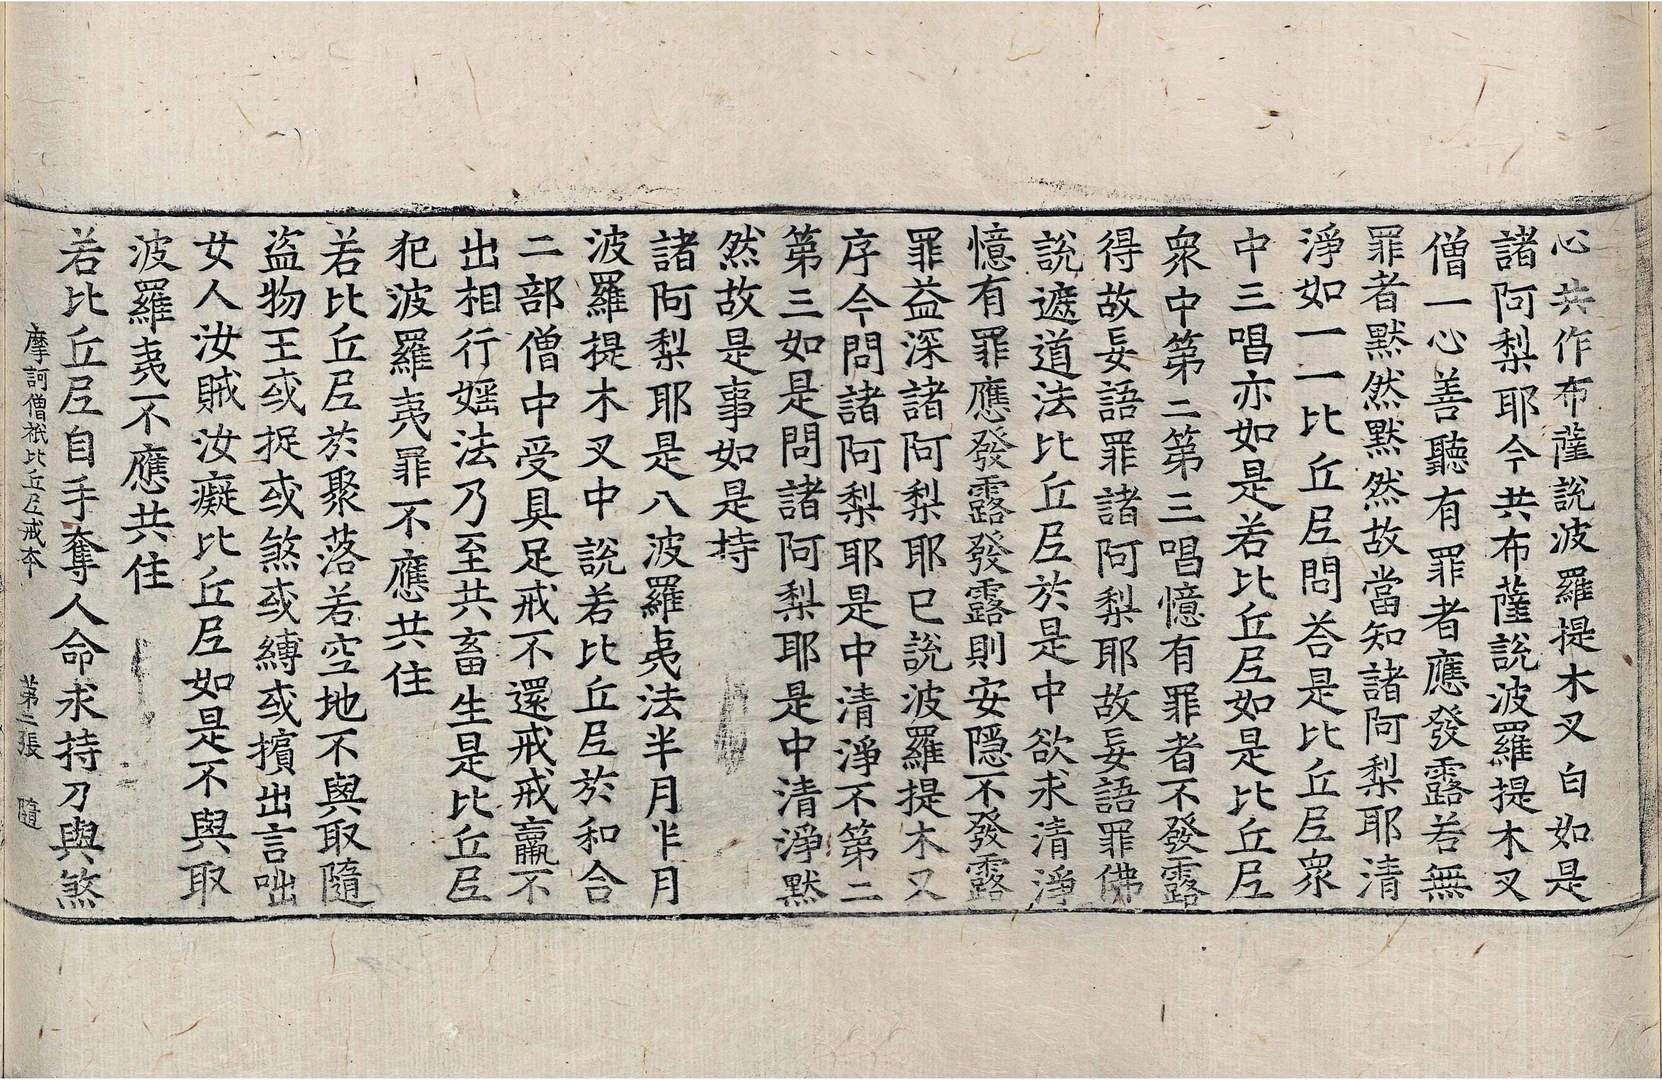 心共作布薩說波羅提木叉白如是
諸阿梨耶今共布薩說波羅提木叉
僧一心善聽有罪者應發露若無
罪者默然默然故當知諸阿梨耶清
淨如一一比丘尼問荅是比丘尼眾
中三唱亦如是若比丘尼如是比丘尼
眾中第二第三唱憶有罪者不發露
得故妄語罪諸阿梨耶故妄語罪佛
說遮道法比丘尼於是中欲求清淨
憶有罪應發露發露則安隱不發露
罪益深諸阿梨耶已說波羅提木叉
序今問諸阿梨耶是中清淨不第二
第三如是問諸阿梨耶是中清淨默
然故是事如是持
諸阿梨耶是八波羅夷法半月半月
波羅提木叉中說若比丘尼於和合
二部僧中受具足戒不還戒戒羸不
出相行婬法乃至共畜生是比丘尼
犯波羅夷罪不應共住
若比丘尼於聚落若空地不與取隨
盜物王或捉或煞或縛或擯出言咄
女人汝賊汝癡比丘尼如是不與取
波羅夷不應共住
摩訶僧祇比丘尼戒本 第二張 隨
若比丘尼自手奪人命求持刀與煞